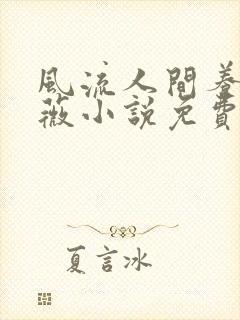 風流人間養
薇小說免費
夏言冰